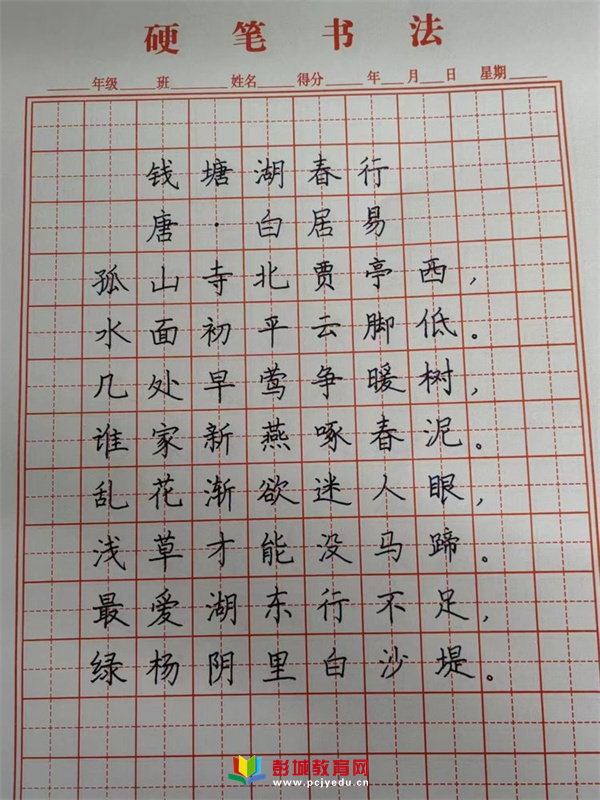 硬笔书法
年级 班 姓名 得分 年 月 日 星期
钱塘湖春行
唐·白居易
孤山寺北贾亭西，
水面初平云脚低。
几处早莺争暖树，
谁家新燕啄春泥。
乱花渐欲迷人眼，
浅草才能没马蹄。
最爱湖东行不足，
绿杨阴里白沙堤。
彭城教育网
www.pcjyedu.cn